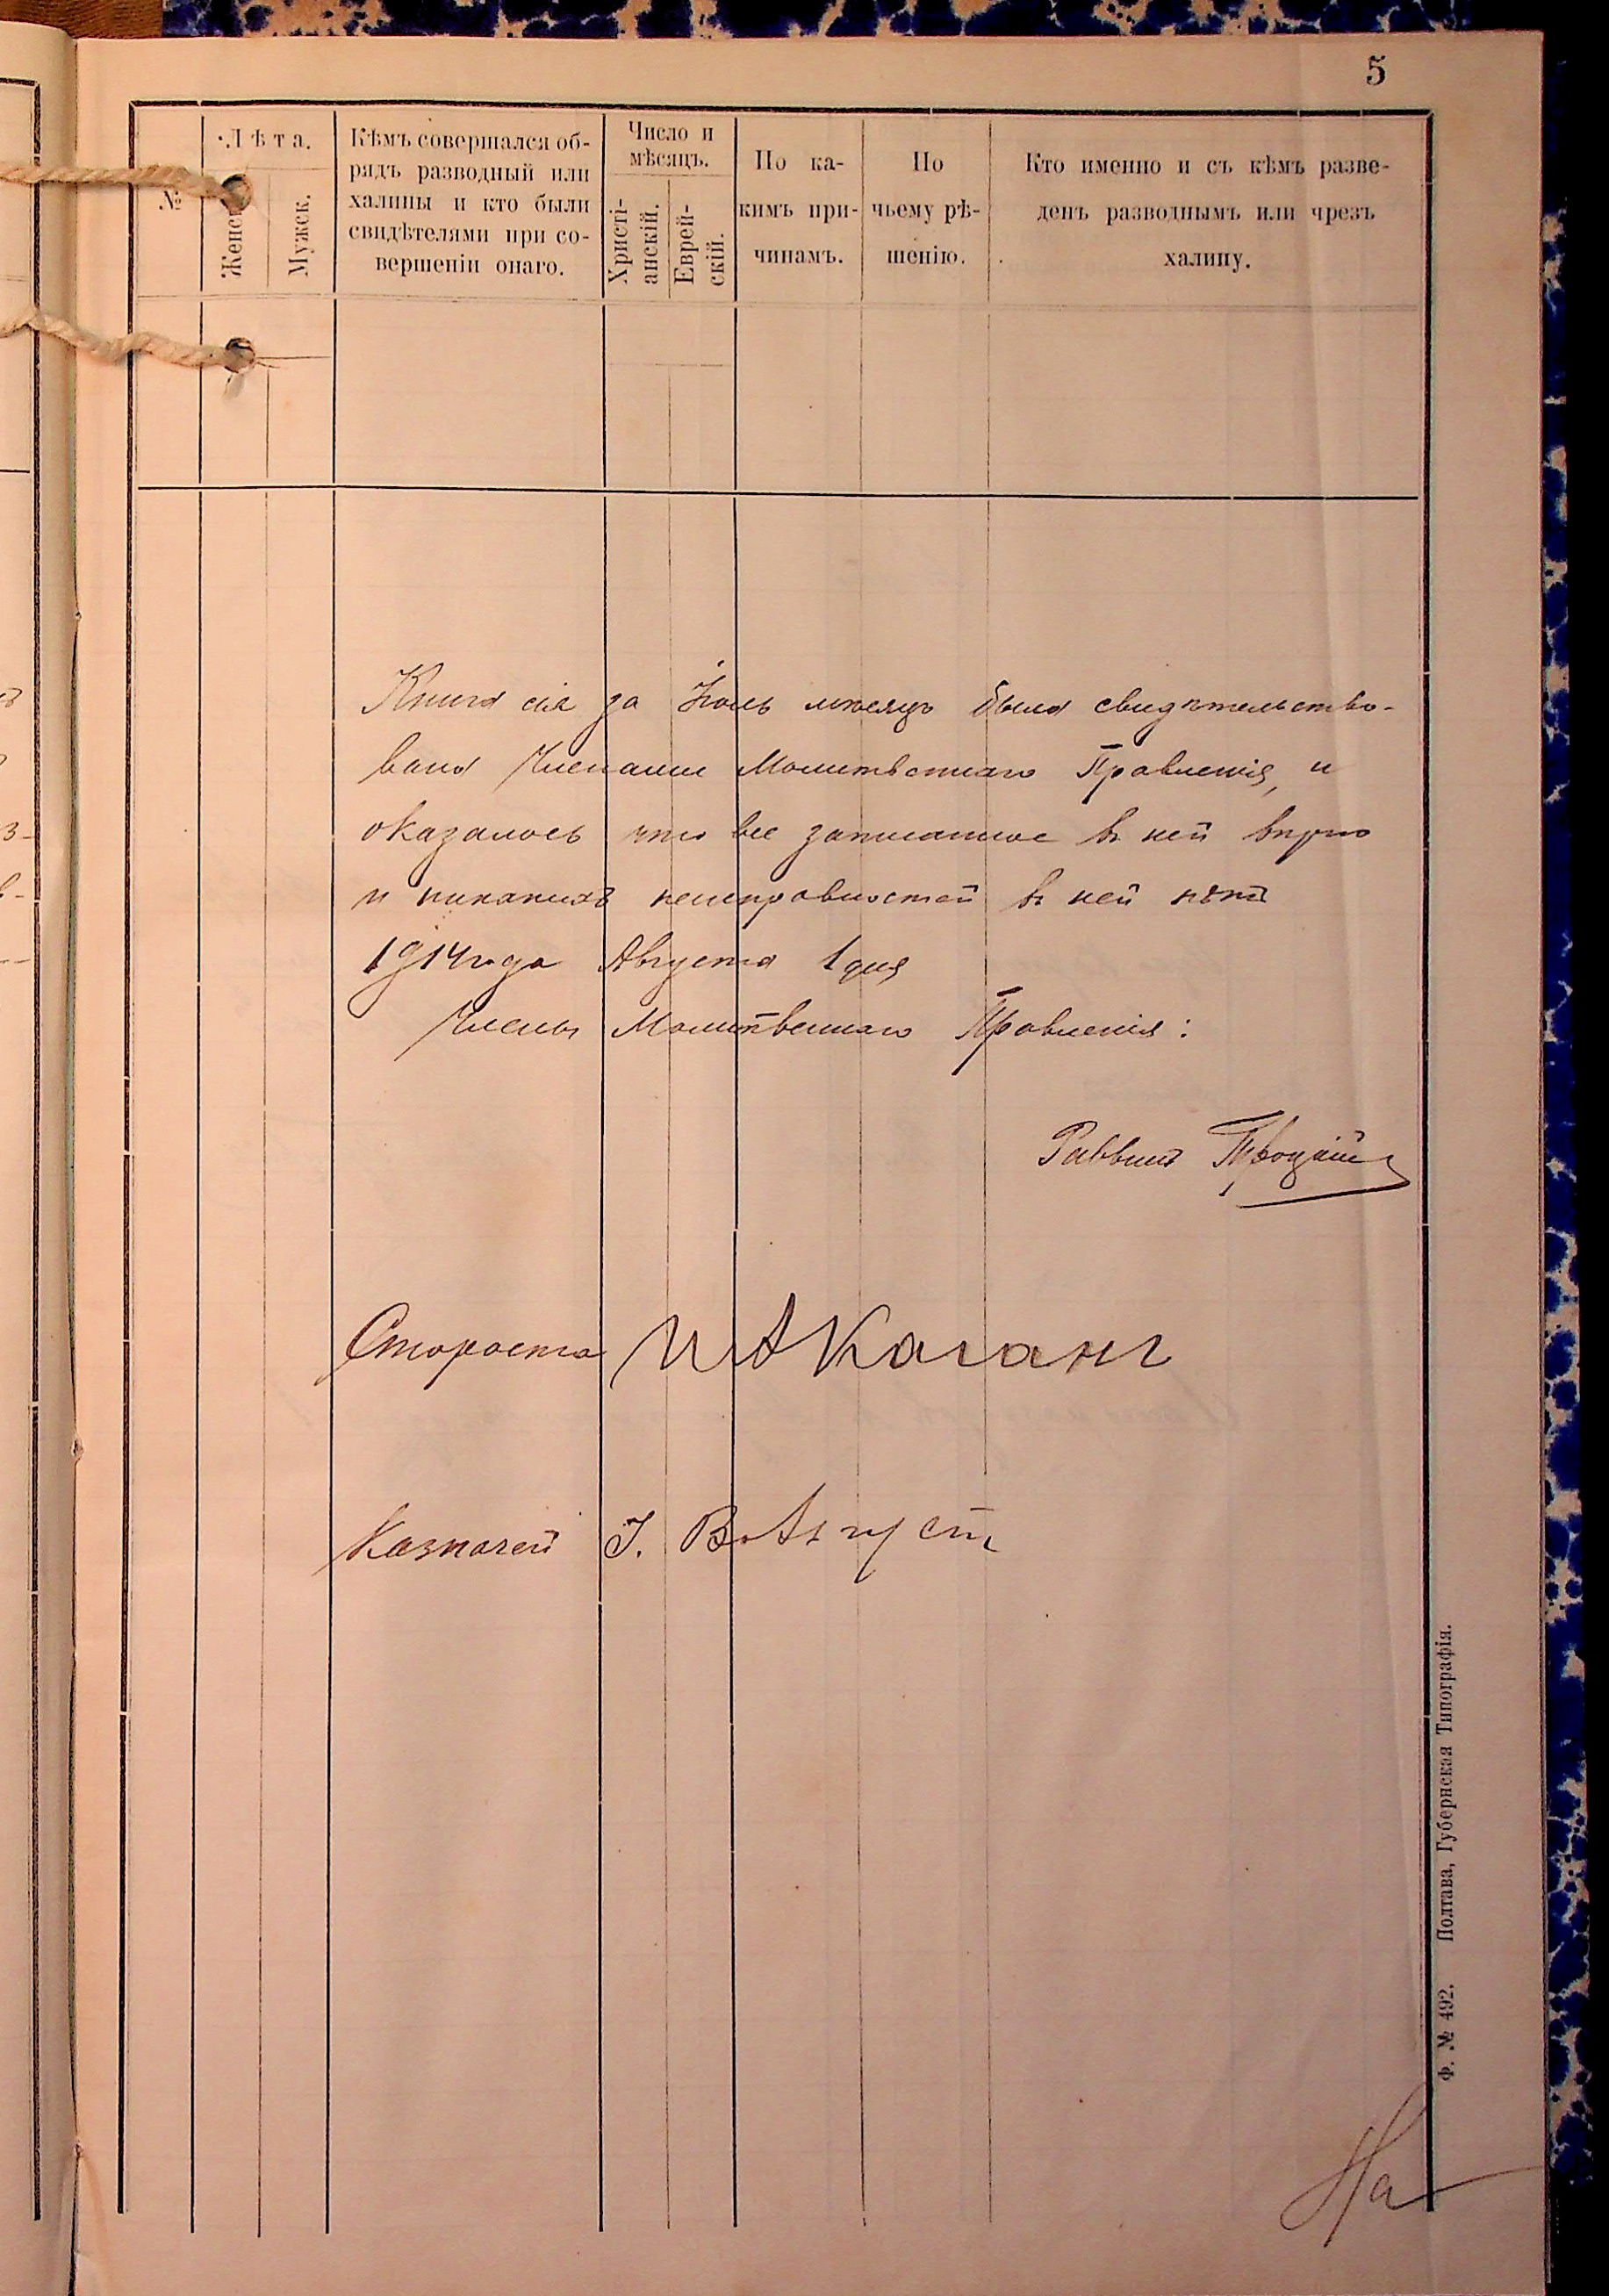 5
№
Лѣта.
Женск.
Мужск.
Кѣмъ совершался об-
рядъ разводный или
халицы и кто были
свидѣтелями при со-
вершеніи онаго.
Число и
мѣсяцъ.
Христі-
анскій.
Еврей-
скій.
По ка-
кимъ при-
чинамъ.
По
чьему рѣ-
шенію.
Кто именно и съ кѣмъ разве-
денъ разводнымъ или чрезъ
халицу.
Книга сія за Іюль мѣсяцъ была свидѣтельство-
вана Членами Молитвеннаго Правленія, и
оказалось что все записанное въ ней вѣрно
и никакихъ неисправностей въ ней нѣтъ
1914 года Августа 1 дня
Члены Молитвеннаго Правленія:
Раввинъ
Староста И А Каганъ
Казначей І.
На
Ф. № 492. Полтава, Губернская Типографія.